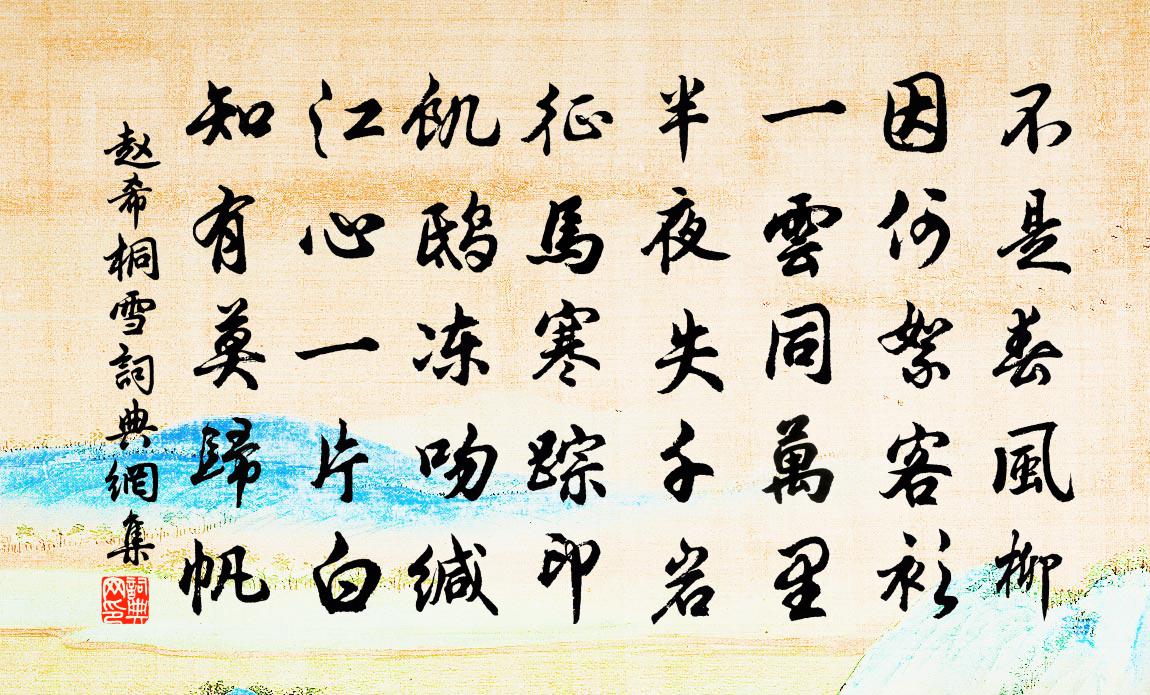 不是春風柳
因何絮客衫
一雲同萬里
半夜失千岩
征馬寒踪印
飢鴟冻吻緘
江心一片白
知有莫歸帆
赵希桐雪詞典網集
詞典网印